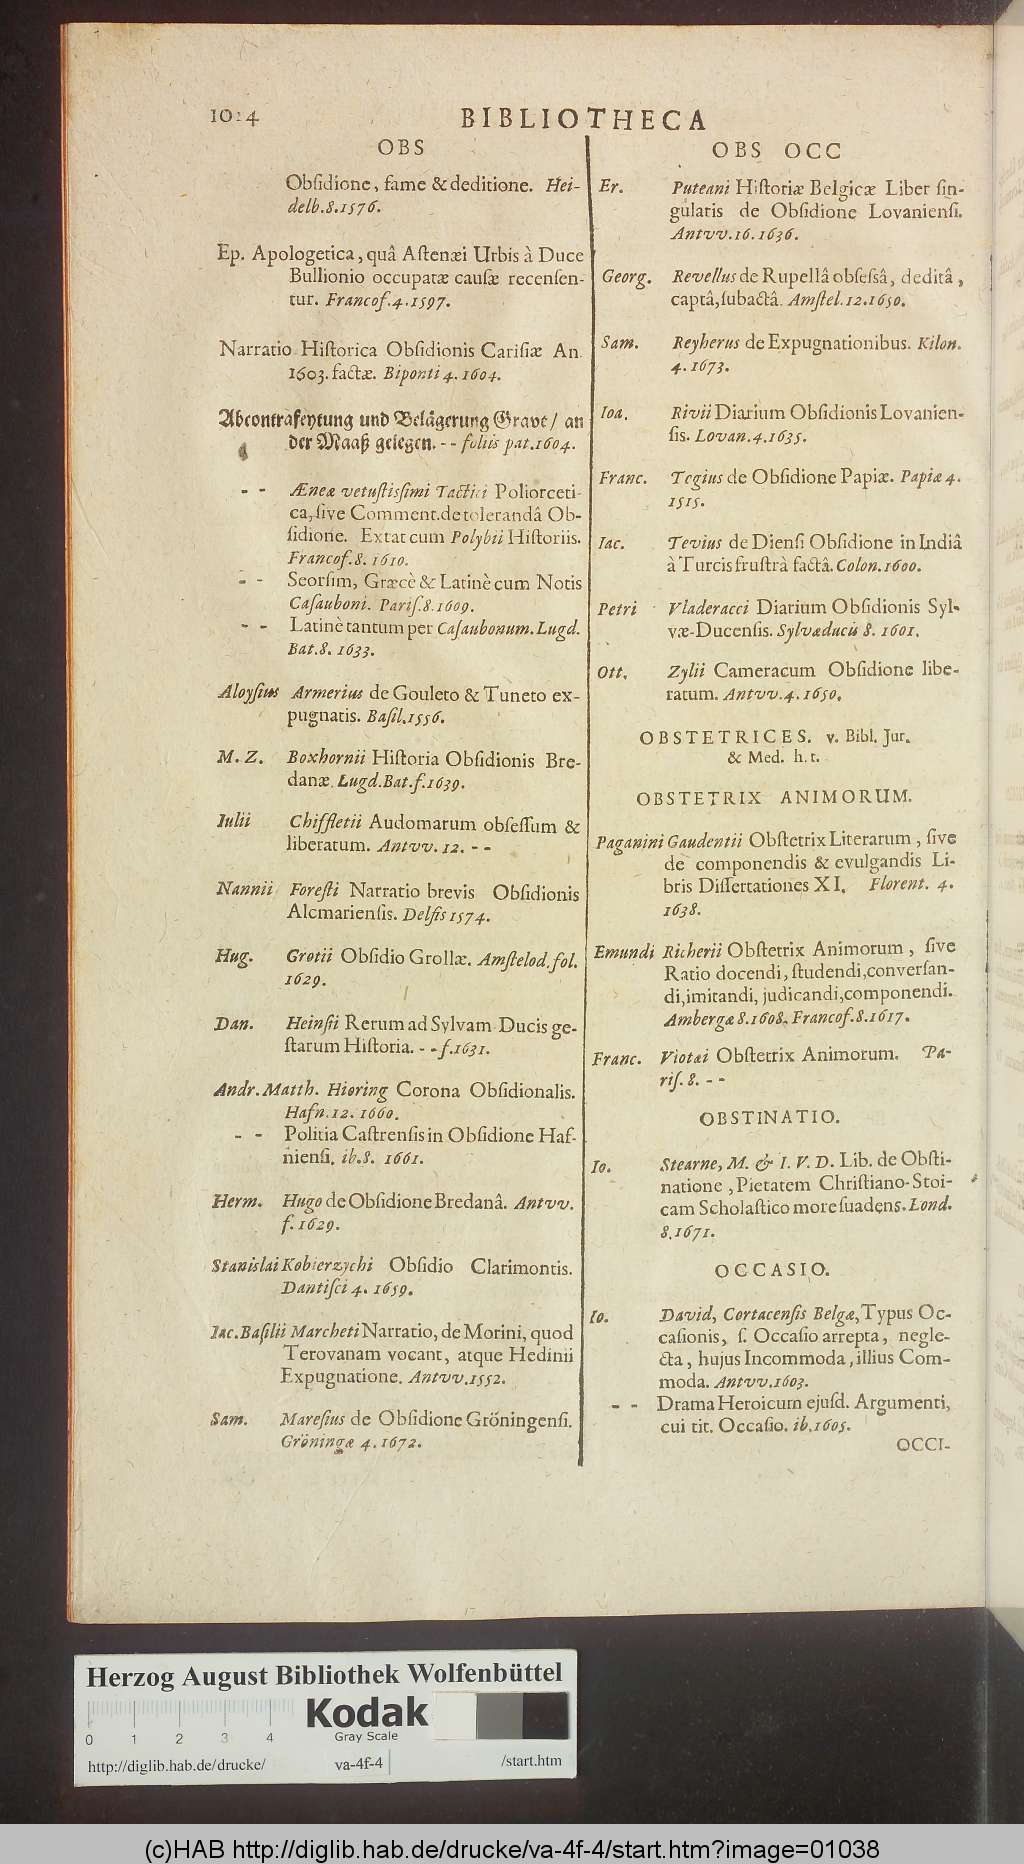 1014
BIBLIOTHECA
OBS
Obſidione, fame & deditione. Hei-
delb.8.1576.
Ep. Apologetica, quâ Aſtenæi Urbis à Duce
Bullionio occupatæ cauſæ recenſen-
tur. Francof.4.1597.
Narratio Hiſtorica Obſidionis Cariſiæ An.
1603. factæ. Biponti 4. 1604.
Abcontrafeytung und Belägerung Grave/ an
der Maaß gelegen. - - foliis pat.1604.
- - Æneæ vetuſtisſimi Tactici Poliorceti-
ca, ſive Comment. de tolerandâ Ob-
ſidione. Extat cum Polybii Hiſtoriis.
Francof.8. 1610.
- - Seorſim, Græcè & Latinè cum Notis
Caſauboni. Pariſ.8.1609.
- - Latinè tantum per Caſaubonum. Lugd.
Bat.8. 1633.
Aloyſius Armerius de Gouleto & Tuneto ex-
pugnatis. Baſil.1556.
M. Z. Boxhornii Hiſtoria Obſidionis Bre-
danæ. Lugd.Bat.f.1639.
Iulii Chiffletii Audomarum obſeſſum &
liberatum. Antvv. 12. - -
Nannii Foreſti Narratio brevis Obſidionis
Alcmarienſis. Delfis 1574.
Hug. Grotii Obſidio Grollæ. Amſtelod.fol.
1629.
Dan. Heinſii Rerum ad Sylvam Ducis ge-
ſtarum Hiſtoria. - - f.1631.
Andr. Matth. Hiøring Corona Obſidionalis.
Hafn.12. 1660.
- - Politia Caſtrenſis in Obſidione Haf-
nienſi. ib.8. 1661.
Herm. Hugo de Obſidione Bredanâ. Antvv.
f.1629.
Stanislai Kobierzychi Obſidio Clarimontis.
Dantiſci 4. 1659.
Iac.Baſilii Marcheti Narratio, de Morini, quod
Terovanam vocant, atque Hedinii
Expugnatione. Antvv.1552.
Sam. Mareſius de Obſidione Gröningenſi.
Gröningæ 4. 1672.
OBS OCC
Er. Puteani Hiſtoriæ Belgicæ Liber ſin-
gularis de Obſidione Lovanienſi.
Antvv.16.1636.
Georg. Revellus de Rupellâ obſeſsâ, deditâ,
captâ, ſubactâ. Amſtel.12.1650.
Sam. Reyherus de Expugnationibus. Kilon.
4.1673.
Ioa. Rivii Diarium Obſidionis Lovanien-
ſis. Lovan.4.1635.
Franc. Tegius de Obſidione Papiæ. Papiæ 4.
1515.
Iac. Tevius de Dienſi Obſidione in Indiâ
à Turcis fruſtrà factâ. Colon.1600.
Petri Vladeracci Diarium Obſidionis Syl-
væ-Ducenſis. Sylvæducis 8. 1601.
Ott. Zylii Cameracum Obſidione libe-
ratum. Antvv.4.1650.
OBSTETRICES. v. Bibl. Jur.
& Med. h. t.
OBSTETRIX ANIMORUM.
Paganini Gaudentii Obſtetrix Literarum, ſive
de componendis & evulgandis Li-
bris Diſſertationes XI. Florent. 4.
1638.
Emundi Richerii Obſtetrix Animorum, ſive
Ratio docendi, ſtudendi, converſan-
di, imitandi, judicandi, componendi.
Ambergæ 8.1608. Francof.8.1617.
Franc. Viotæi Obſtetrix Animorum. Pa-
riſ.8. - -
OBSTINATIO.
Io. Stearne, M. & I. V. D. Lib. de Obſti-
natione, Pietatem Chriſtiano-Stoi-
cam Scholaſtico more ſuadens. Lond.
8.1671.
OCCASIO.
Io. David, Cortacenſis Belgæ, Typus Oc-
caſionis, ſ. Occaſio arrepta, negle-
cta, hujus Incommoda, illius Com-
moda. Antvv.1603.
- - Drama Heroicum ejuſd. Argumenti,
cui tit. Occaſio. ib.1605.
OCCI-
Herzog August Bibliothek Wolfenbüttel
Kodak
Gray Scale
0 1 2 3 4
http://diglib.hab.de/drucke/ va-4f-4 /start.htm
(c)HAB http://diglib.hab.de/drucke/va-4f-4/start.htm?image=01038